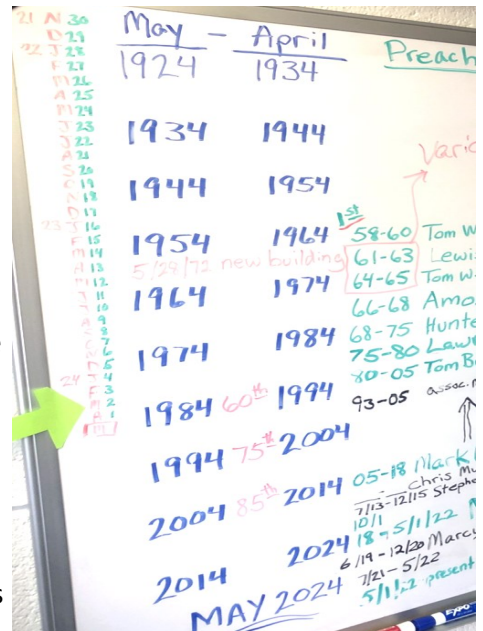 21 N 30
D 29
22 J 28
F 27
M 26
A 25
M 24
J 23
J 22
A 21
S 20
O 19
N 18
D 17
23 J 16
F 15
M 14
A 13
M 12
J 11
J 10
A 9
S 8
O 7
N 6
D 5
24 J 4
F 3
M 2
A 1
M
May - April
1924 1934
1934 1944
1944 1954
1954 1964
5/28/72 new building
1964 1974
1974 1984
1984 60th 1994
1994 75th 2004
2004 85th 2014
2014 2024
MAY 2024
Preach
Vario
1st
58-60 Tom W
61-63 Lewi
64-65 Tom W.
66-68 Amo
68-75 Hunte
75-80 Law
80-05 Tom B
93-05 assoc.
05-18 Mark
Chris Mu
7/13-12/15 Stephe
10/1
18-5/1/22
6/19-12/20 Marcu
7/21-5/22
5/1/22 present
EXPO